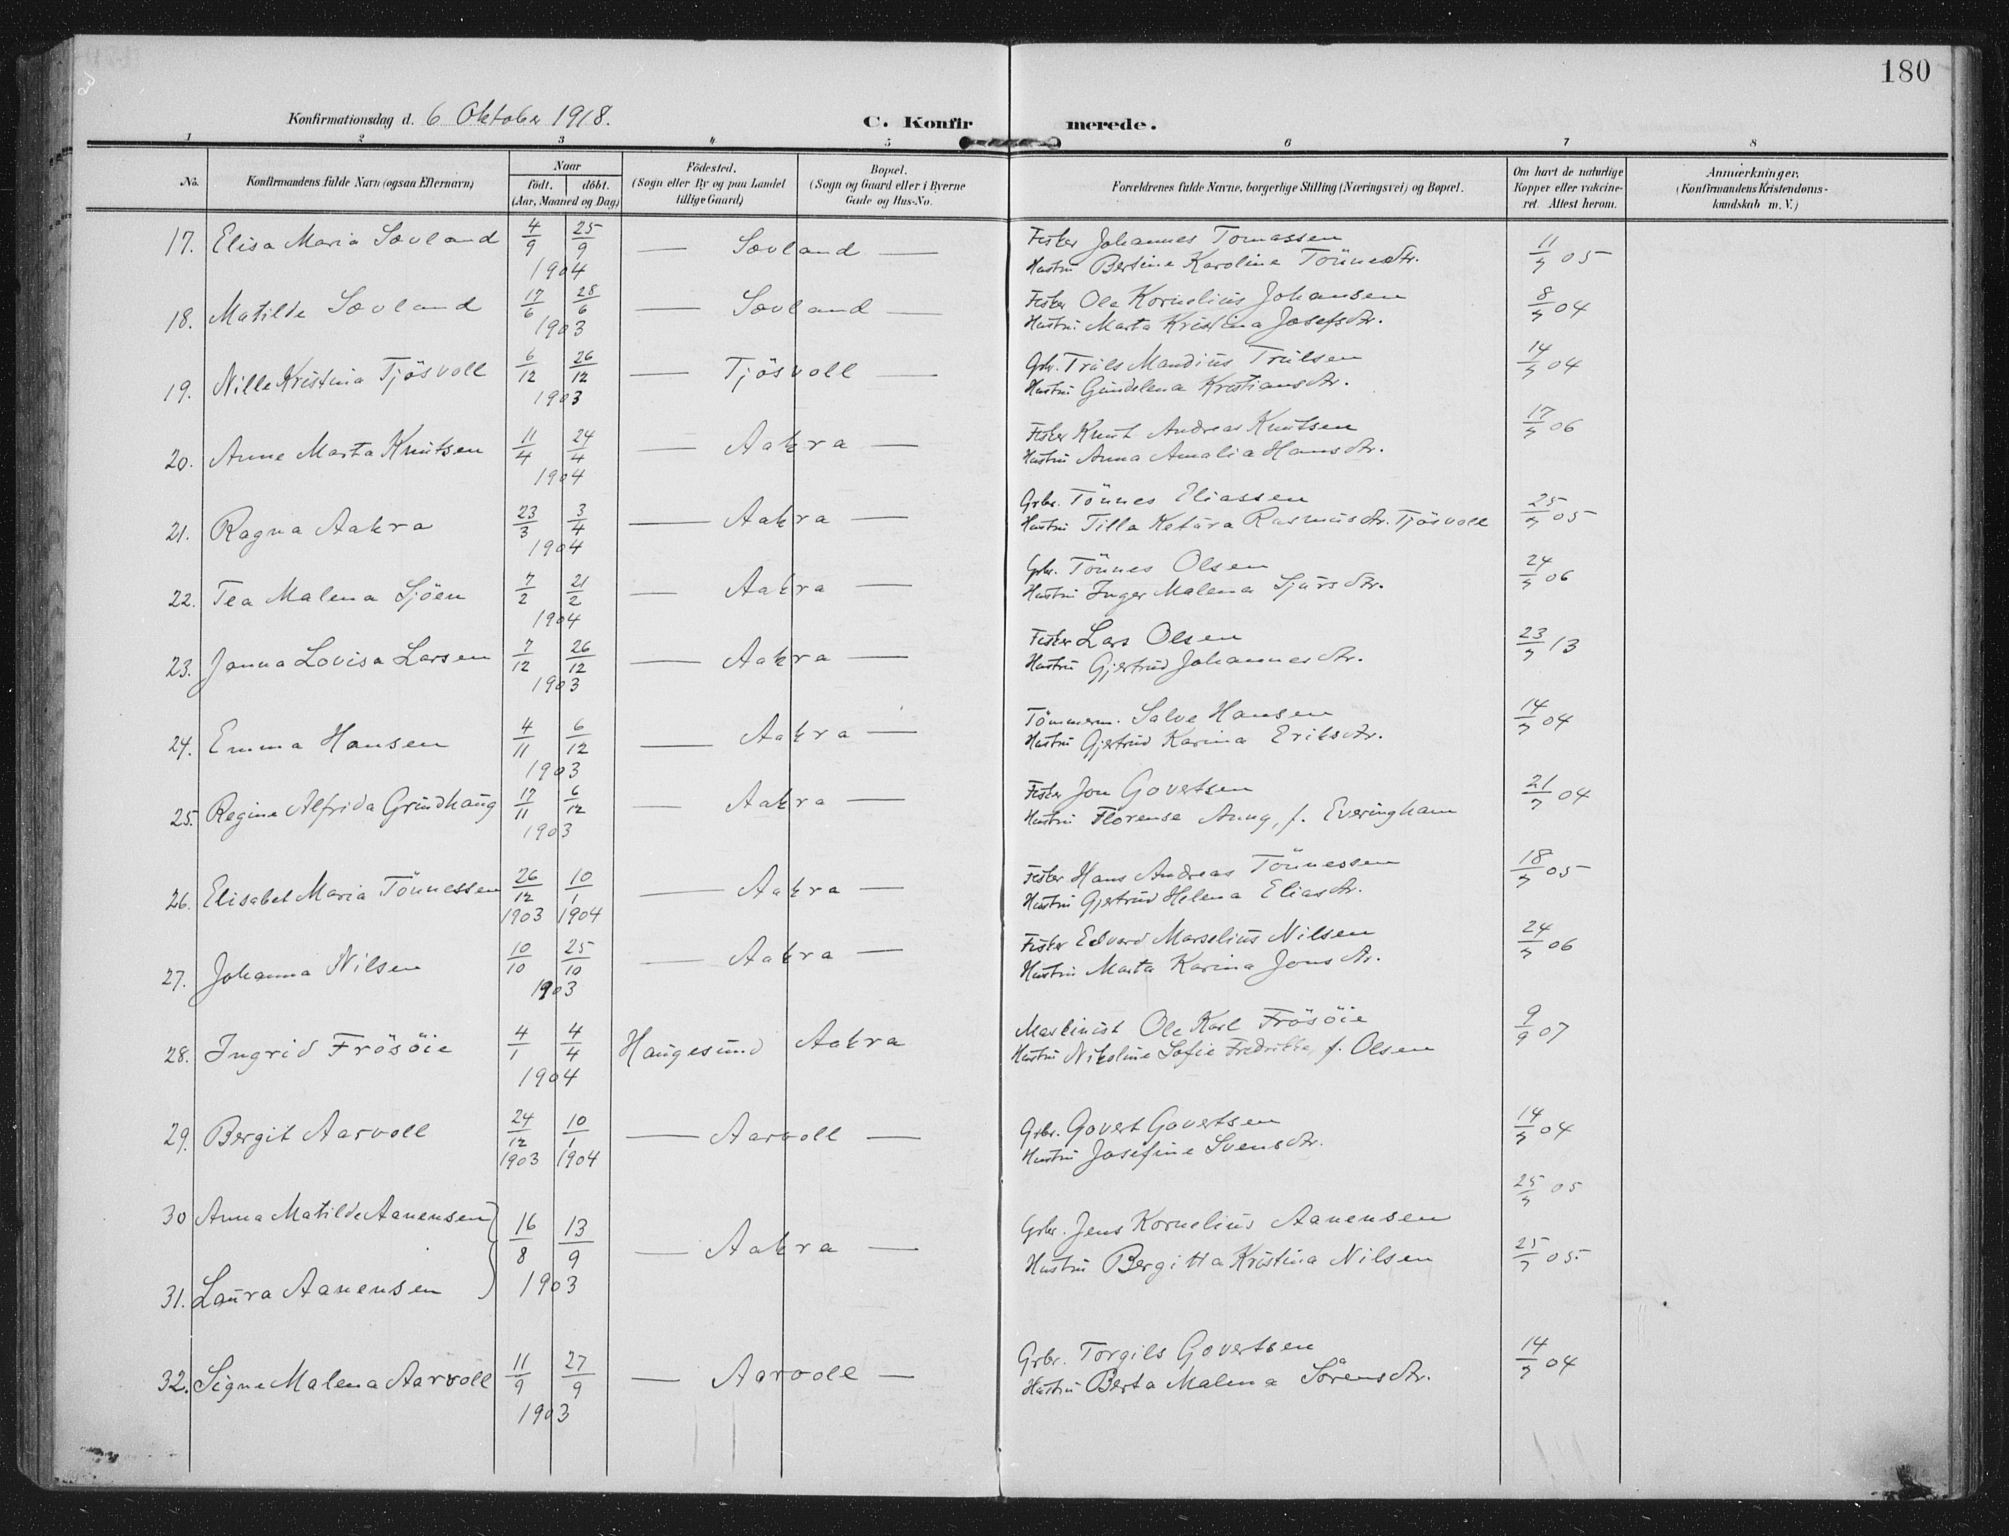 180
Konfirmationsdag d. 6 Oktober 1918.
C. Konfirmerede.
1 2 3 4 5 6 7 8
No. Konfirmandens fulde Navn (ogsaa Efternavn) Naar født. døbt. (Aar, Maaned og Dag) Fødested. (Sogn eller By og paa Landet tillige Gaard) Bopæl. (Sogn og Gaard eller i Byerne Gade og Hus-No. Forældrenes fulde Navne, borgerlige Stilling (Næringsvei) og Bopæl. Om havt de naturlige Kopper eller vakcineret. Attest herom. Anmærkninger. (Konfirmandens Kristendomskundskab m. V.)
17. Elisa Maria Sævland 4/9 25/9 1904 — Sævland — Fisker Johannes Tomassen 11/7 05
Hustru Bertine Karoline Tönnesdtr.
18. Matilde Sævland 17/6 28/6 1903 — Sævland — Fisker Ole Kornelius Johansen 8/7 04
Hustru Marta Kristina Josefsdtr.
19. Nille Kristina Tjösvoll 6/12 26/12 1903 — Tjösvoll — Gbr. Truls Mandius Trulsen 14/7 04
Hustru Gundelena Kristiansdtr.
20. Anne Marta Knutsen 11/4 24/4 1904 — Aakra — Fisker Knut Andreas Knutsen 17/7 06
Hustru Anna Amalia Hansdtr.
21. Ragna Aakra 23/3 3/4 1904 — Aakra — Grbr. Tönnes Eliassen 25/7 05
Hustru Tilla Ketura Rasmusdtr. Tjösvoll
22. Tea Malena Sjöen 7/2 21/2 1904 — Aakra — Gbr. Tönnes Olsen 24/7 06
Hustru Inger Malena Sjursdtr.
23. Janna Lovisa Larsen 7/12 26/12 1903 — Aakra — Fisker Lars Olsen 23/7 13
Hustru Gjertrud Johannesdtr.
24. Emma Hansen 4/11 6/12 1903 — Aakra — Tömmerm. Salve Hansen 14/7 04
Hustru Gjertrud Karina Eriksdtr.
25. Regine Alfrida Grindhaug 17/11 6/12 1903 — Aakra — Fisker Jon Govertsen 21/7 04
Hustru Florense Anny, f. Everingham
26. Elisabet Maria Tönnessen 26/12 1903 10/1 1904 — Aakra — Fisker Hans Andreas Tönnessen 18/7 05
Hustru Gjertrud Helena Eliasdtr.
27. Johanna Nilsen 10/10 25/10 1903 — Aakra — Fisker Edvard Marselius Nilsen 24/7 06
Hustru Marta Karina Jonsdtr.
28. Ingrid Frösöie 4/1 4/4 1904 Haugesund Aakra Maskinist Ole Karl Frösöie 9/9 07
Hustru Nikoline Sofie Fredrikke, f. Olsen
29. Bergit Aarvoll 24/12 1903 10/1 1904 — Aarvoll — Grbr. Govert Govertsen 14/7 04
Hustru Josefine Svensdtr.
30 Anna Matilde Aanensen 25/7 05
16/8 13/9 1903 — Aakra — Grbr. Jens Kornelius Aanensen
Hustru Bergitta Kristina Nilsen 25/7 05
31. Laura Aanensen
32. Signe Malena Aarvoll 11/9 27/9 1903 — Aarvoll — Grbr. Torgils Govertsen 14/7 04
Hustru Berta Malena Sörensdtr.